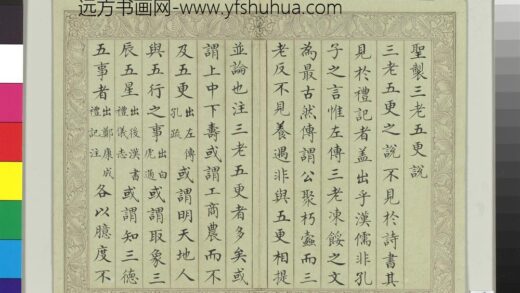 远方书画网-www.yfshuhua.com
聖製三老五更說
三老五更之說不見於詩書其
見於禮記者蓋出乎漢儒非孔
子之言惟左傳三老凍餒之文
為最古然傳謂公聚朽蠹而三
老反不見養遇非與五更相提
並論也注三老五更者多矣或
謂上中下壽或謂工商農而不
及五更出左傳孔疏或謂明天地人
與五行之事出白虎通或謂取象三
辰五星出後漢書禮儀志或謂知三德
五事者出鄭康成禮記注各以臆度不